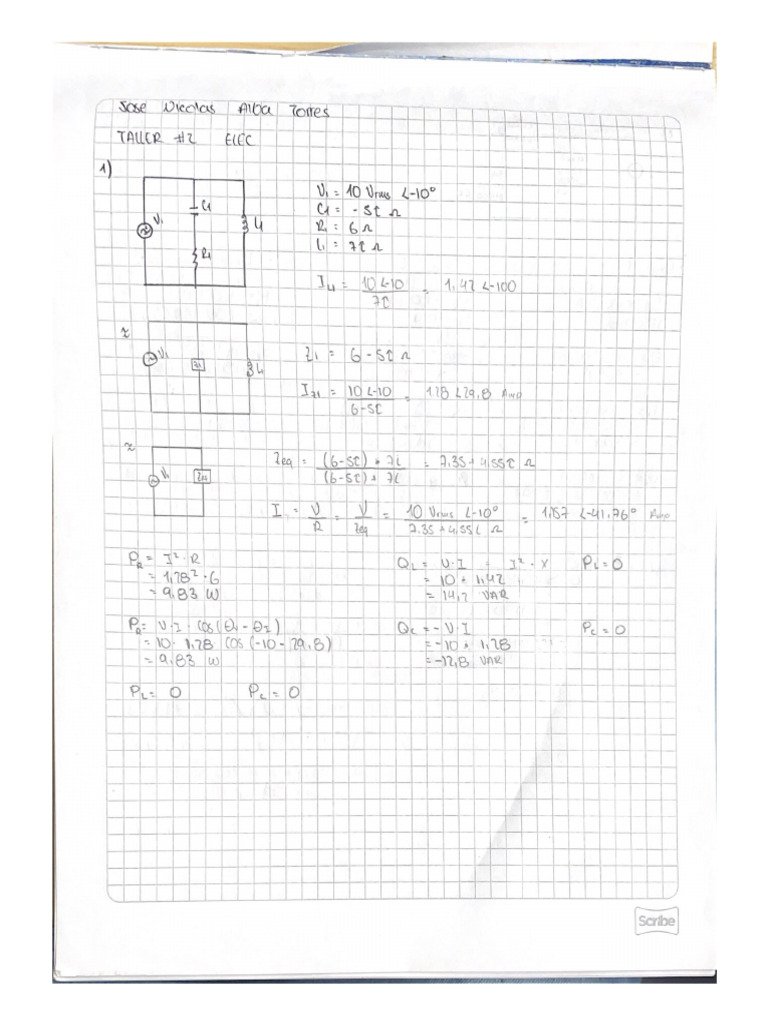 Jose Nicolas Alba Torres
TALLER #2 ELEC
1)
V1
C1
R1
L1
V1 = 10 Vrms ∠-10°
C1 = -5i Ω
R1 = 6 Ω
L1 = 7i Ω
IL1 = 10 ∠-10 / 7i = 1,42 ∠-100
2
V1
Z1
L1
Z1 = 6 - 5i Ω
IZ1 = 10 ∠-10 / 6-5i = 1,28 ∠29,8 Amp
2
V1
Zeq
Zeq = (6-5i) * 7i / (6-5i) + 7i = 7.35 + 4.55i Ω
I = V / R = V / Zeq = 10 Vrms ∠-10° / 7.35 + 4.55i Ω = 1,157 ∠-41.76° Amp
PR = I² · R
= 1,28² · 6
= 9,83 W
QL = V · I I² · X PL = 0
= 10 * 1,42
= 14,2 VAR
PR = V · I · cos(θV - θI)
= 10 · 1,28 cos(-10 - 29,8)
= 9,83 W
QC = -V · I PC = 0
= -10 * 1,28
= -12,8 VAR
PL = 0 PC = 0
Scribe